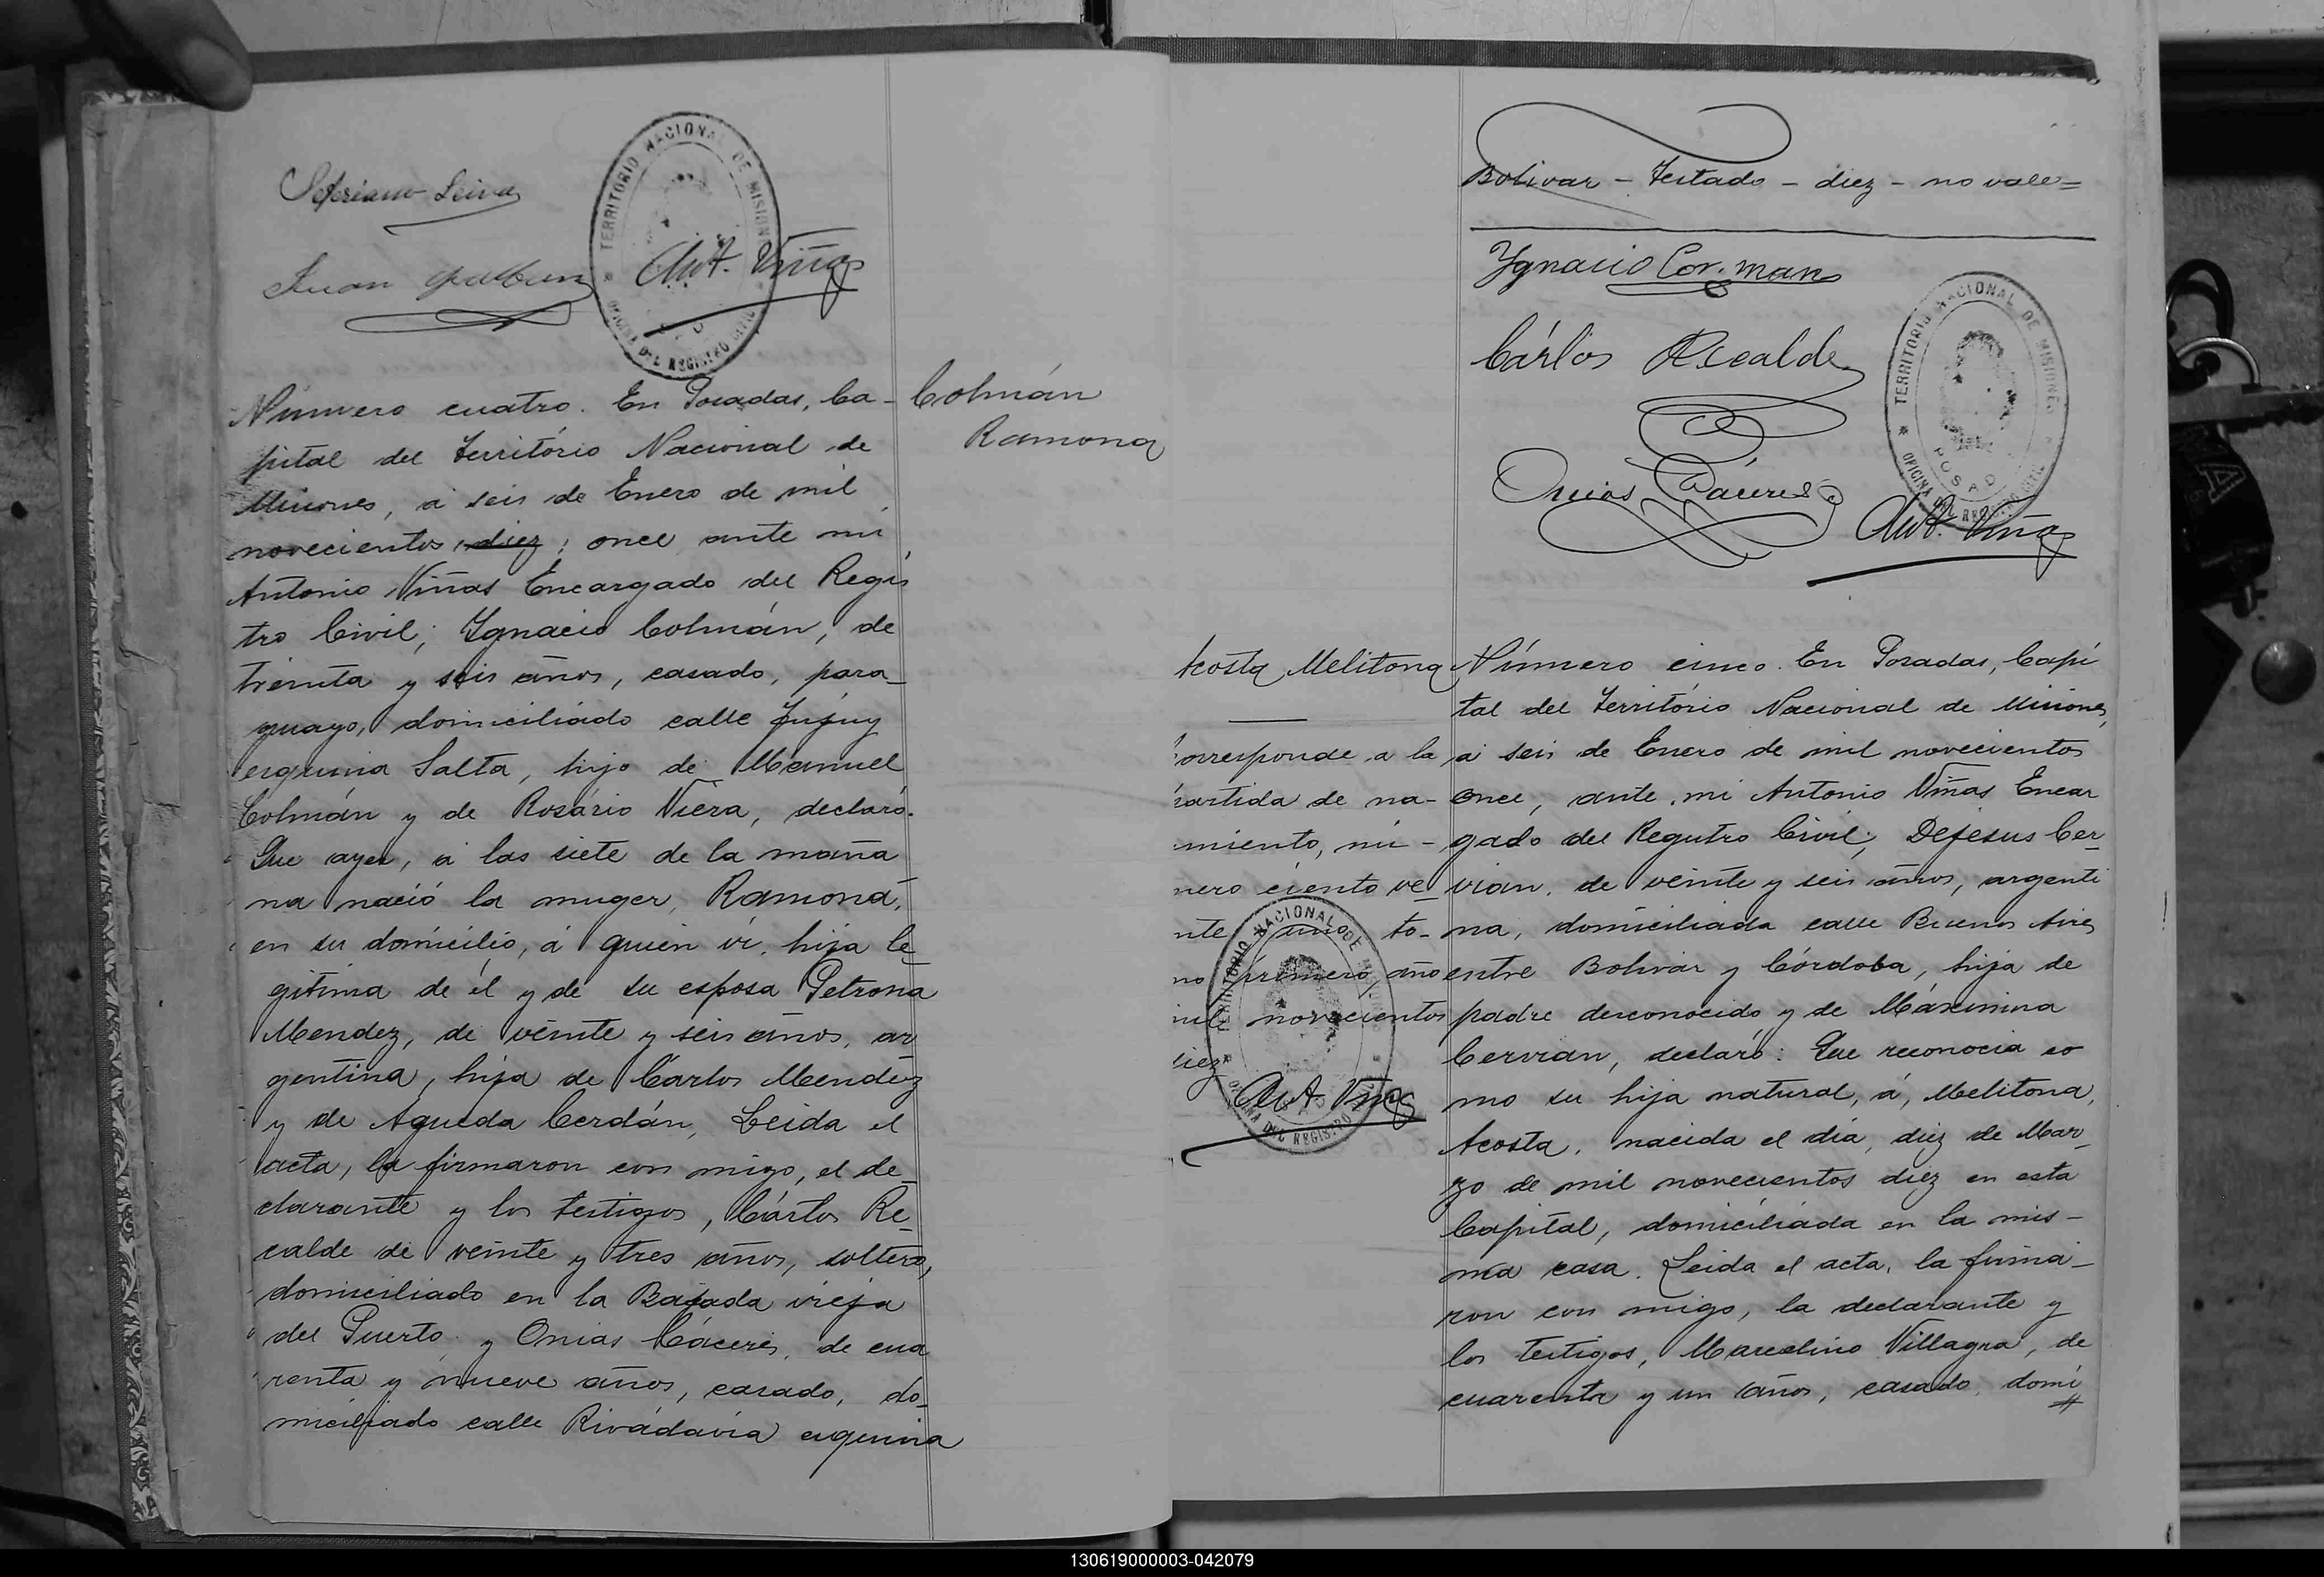 Seferiano Leiva
TERRITORIO NACIONAL DE MISIONES
OFICINA DEL REGISTRO CIVIL
Juan
Ant. Viñas
Número cuatro. En Posadas, Ca-
pital del Território Nacional de
Misiones, á seis de Enero de mil
novecientos, diez; once ante mi
Antonio Viñas Encargado del Regis
tro Civil; Ygnacio Colmán, de
treinta y seis años, casado, para-
guayo, domiciliado calle Jujuy
esquina Salta, hijo de Manuel
Colmán y de Rosário Viera, declaró.
Que ayer, á las siete de la maña
na nació la muger, Ramona,
en su domicilio, á quien vi, hija le-
gitima de él y de su esposa Petrona
Mendez, de veinte y seis años, ar
gentina, hija de Cárlos Mendez
y de Agueda Cerdán, Leida el
acta, la firmaron con migo, el de-
clarante y los testigos, Cárlos Re-
calde de veinte y tres años, soltero,
domiciliado en la Bajada vieja
del Puerto, y Onias Cáceres, de cua
renta y nueve años, casado, do-
miciliado calle Rivadávia esquina
Colmán
Ramona
Bolivar - Testado - diez - no vale=
Ygnacio Col.man
Cárlos Recalde
TERRITORIO NACIONAL DE MISIONES
OFICINA DEL REGISTRO CIVIL
POSADAS
Onias Cáceres
Ant. Viñas
Acosta Melitona
corresponde a la
partida de na-
miento, nú-
mero ciento ve-
nte uno, to-
mo primero, año
mil novecientos
diez
TERRITORIO NACIONAL DE
OFICINA DEL REGISTRO
Ant. Viñas
Número cinco. En Posadas, Capi
tal del Território Nacional de Misiones,
á seis de Enero de mil novecientos
once, ante mi Antonio Viñas Encar
gado del Registro Civil; Dejesus Cer-
vian, de veinte y seis años, argenti
na, domiciliada calle Buenos Aires
entre Bolivar y Córdoba, hija de
padre desconocido y de Máximina
Cervian, declaró: Que reconocia co
mo su hija natural, á, Melitona,
Acosta, nacida el dia, diez de Mar-
zo de mil novecientos diez en esta
Capital, domiciliada en la mis-
ma casa. Leida el acta, la firma-
ron con migo, la declarante y
los testigos, Marcelino Villagra, de
cuarenta y un años, casado, domi